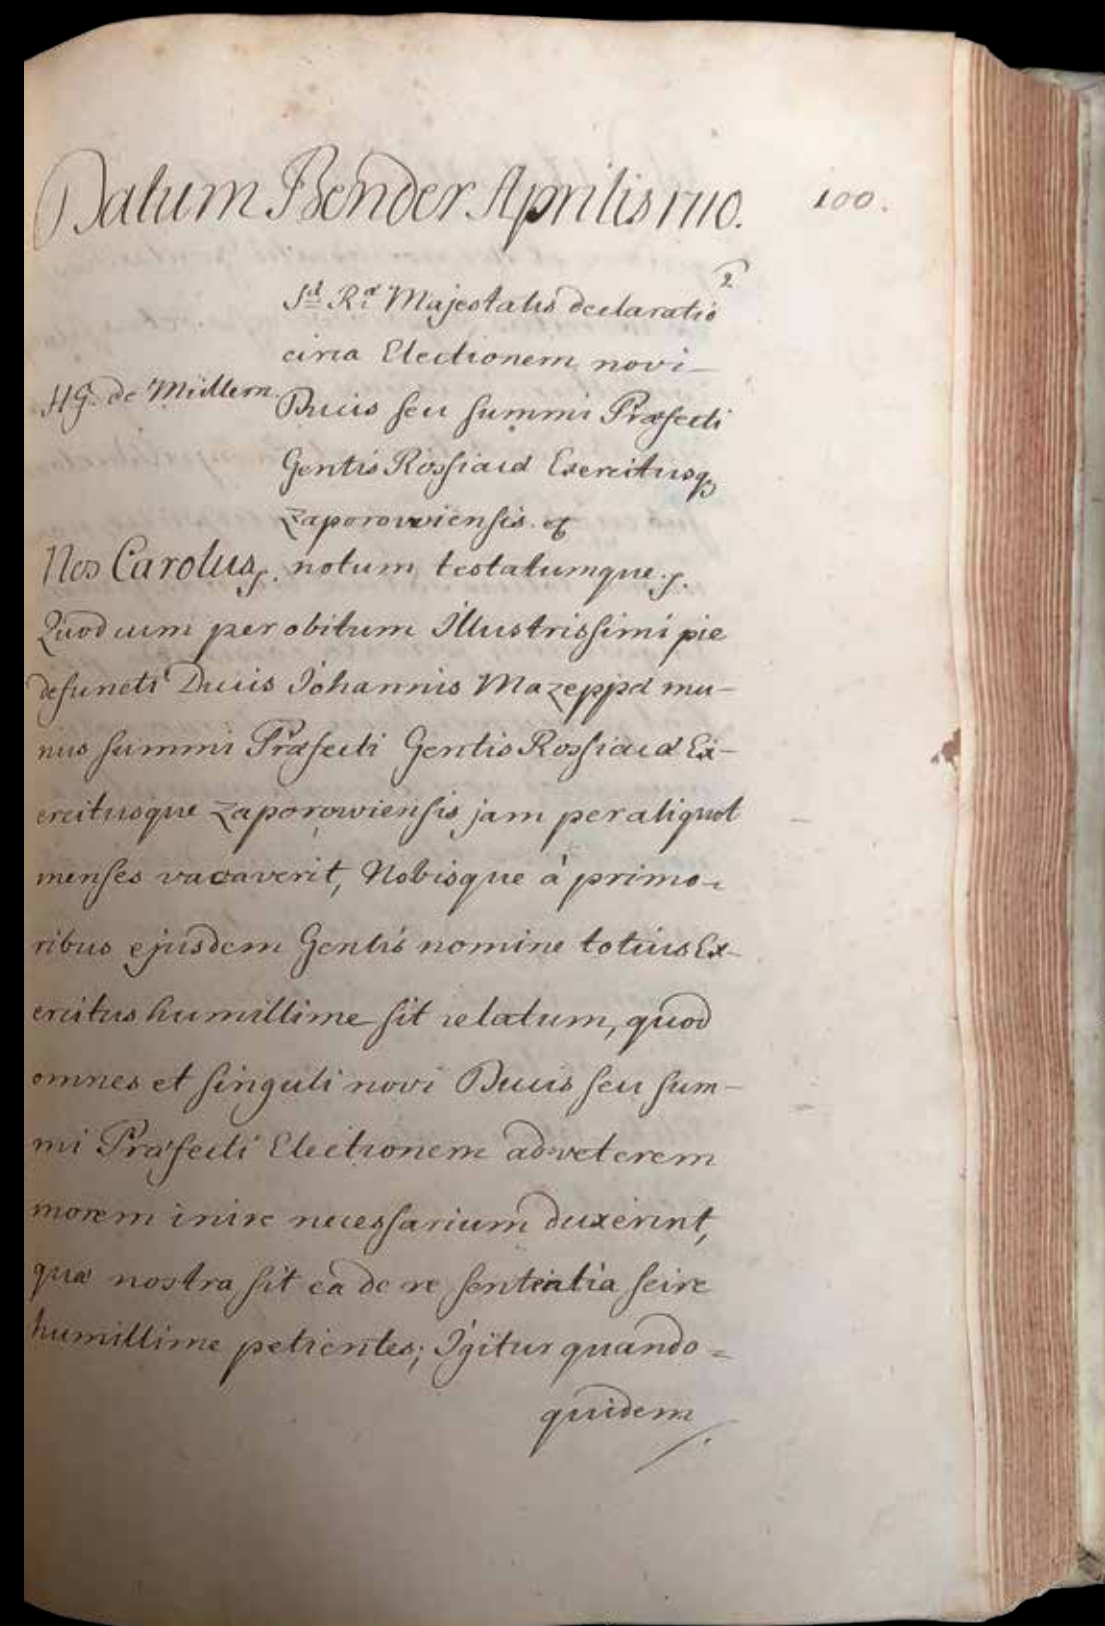 Datum Bender Aprilis 1710.
100.
S:æ R:æ Majestatis declaratio
circa Electionem novi
H.G. de Müllern.
Ducis seu summi Præfecti
Gentis Rossiacæ Exercitusq
Zaporoviensis.
Nos Carolus, notum testatumque.
Quod cum per obitum Illustrissimi pie
defuncti Ducis Johannis Mazeppæ mu-
nus summi Præfecti Gentis Rossiacæ Ex-
ercitusque Zaporoviensis jam per aliquot
menses vacaverit, Nobisque à primo-
ribus ejusdem Gentis nomine totius Ex-
ercitus humillime sit relatum, quod
omnes et singuli novi Ducis seu sum-
mi Præfecti Electionem ad veterem
morem inire necessarium duxerint,
quæ nostra sit ea de re sententia scire
humillime petientes; Igitur quando=
quidem